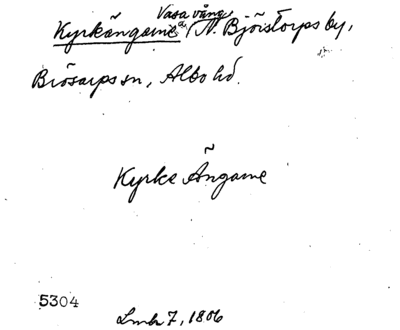 Vasa vång
Kyrkängarne, N. Björstorps by,
Brösarps sn, Albo hd.
Kyrke Ängarne
5304
Lmh 7, 1806